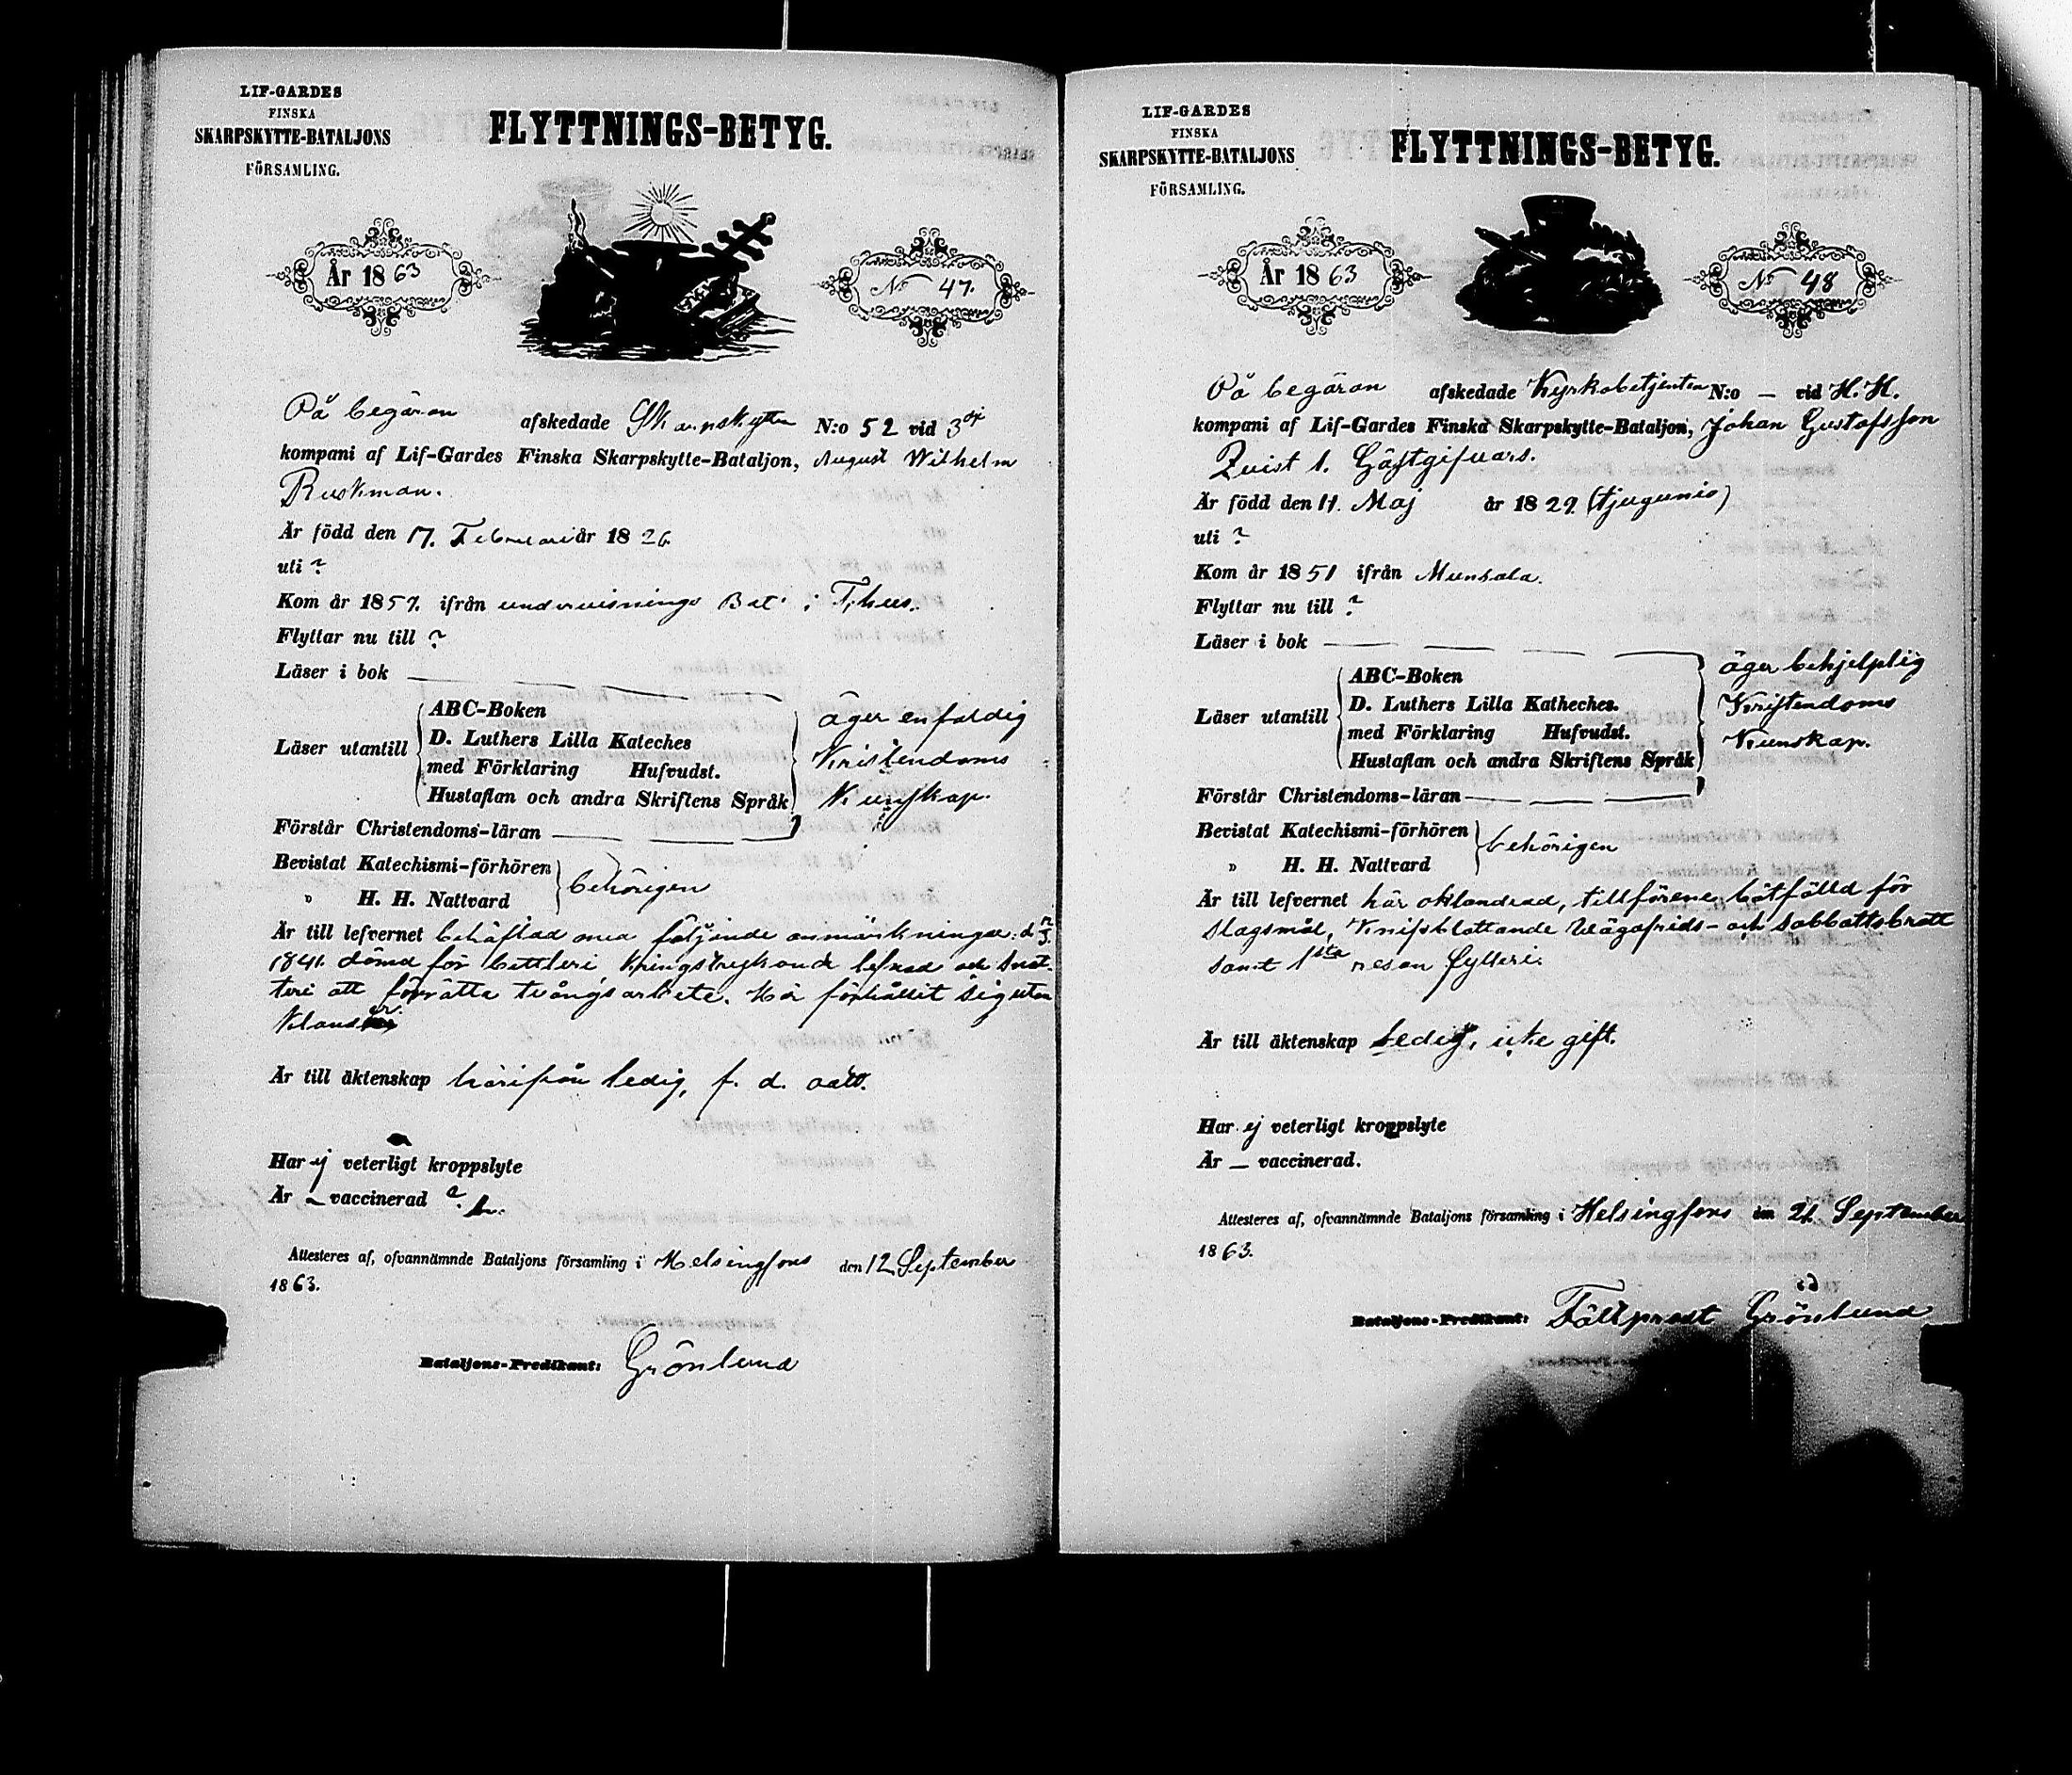 LIF-GARDES
FINSKA
SKARPSKYTTE-BATALJONS
FÖRSAMLING.
FLYTTNINGS-BETYG.
År 1863
No 47.
På begäran afskedade Skarpskytten N:o 52 vid 3dje
kompani af Lif-Gardes Finska Skarpskytte-Bataljon, August Wilhelm
Ruskman.
Är född den 17. Februari år 1826
uti ?
Kom år 1857. ifrån undervisnings Bat: i
Flyttar nu till ?
Läser i bok
Läser utantill
ABC-Boken
D. Luthers Lilla Kateches
med Förklaring Hufvudst.
Hustaflan och andra Skriftens Språk
Förstår Christendoms-läran
äger enfaldig
Kristendoms
Kunskap.
Bevistat Katechismi-förhören
" H. H. Nattvard
behörigen
Är till lefvernet behäftad med följande anmärkningar:
1841. dömd för bettleri, kringstrykande lefnad och snat-
teri att förrätta tvångsarbete. Här förhållit sig utan
klander
Är till äktenskap härifrån ledig, f. d.
Har ej veterligt kroppslyte
Är – vaccinerad ?
Attesteres af, ofvannämnde Bataljons församling i Helsingfors den 12 September
1863.
Bataljons-Predikant: Grönlund
LIF-GARDES
FINSKA
SKARPSKYTTE-BATALJONS
FÖRSAMLING.
FLYTTNINGS-BETYG.
År 1863
No 48
På begäran afskedade Kyrkobetjenten N:o – vid H. H.
kompani af Lif-Gardes Finska Skarpskytte-Bataljon, Johan Gustafsson
Qvist l. Gästgifvars.
Är född den 11. Maj år 1829. (tjugunio)
uti ?
Kom år 1851 ifrån Munsala.
Flyttar nu till ?
Läser i bok
Läser utantill
ABC-Boken
D. Luthers Lilla Katheches.
med Förklaring Hufvudst.
Hustaflan och andra Skriftens Språk
Förstår Christendoms-läran
äger behjelplig
Kristendoms
Kunskap.
Bevistat Katechismi-förhören
" H. H. Nattvard
behörigen
Är till lefvernet här oklandrad, tillförene bötfälld för
slagsmål, Knifsblottande wägafrids- och sabbattsbrott
samt 1sta resan fylleri.
Är till äktenskap ledig, icke gift.
Har ej veterligt kroppslyte
Är – vaccinerad.
Attesteres af, ofvannämnde Bataljons församling i Helsingfors den 21. September
1863.
Bataljons-Predikant: Fältprost Grönlund